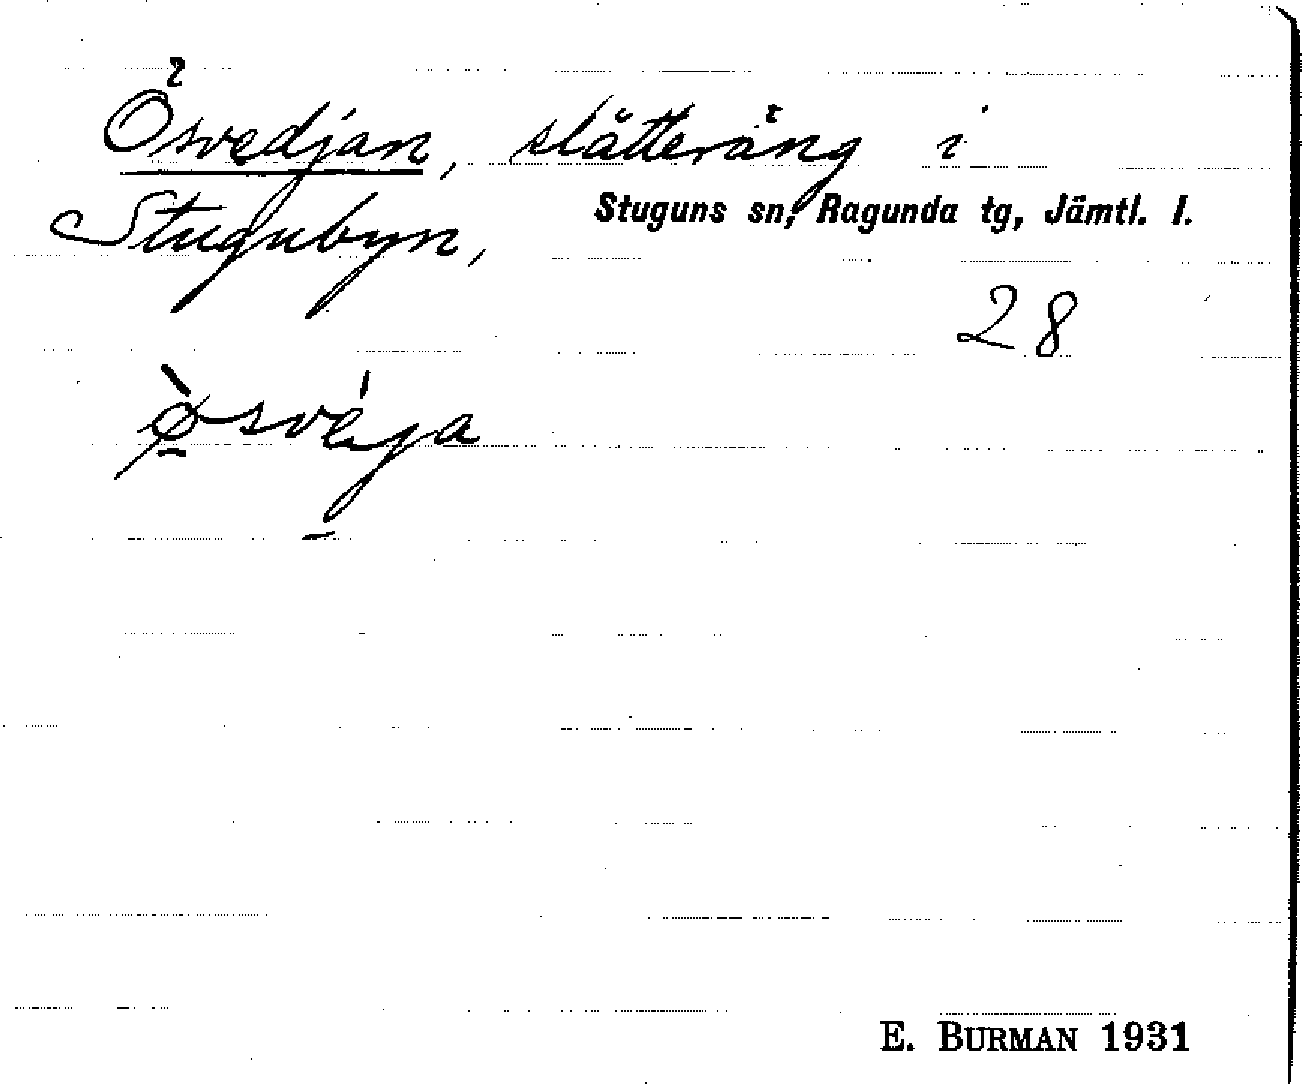 Ösvedjan, slåtteräng i
Stugubyn, Stuguns sn, Ragunda tg, Jämtl. l.
28
E. BURMAN 1931